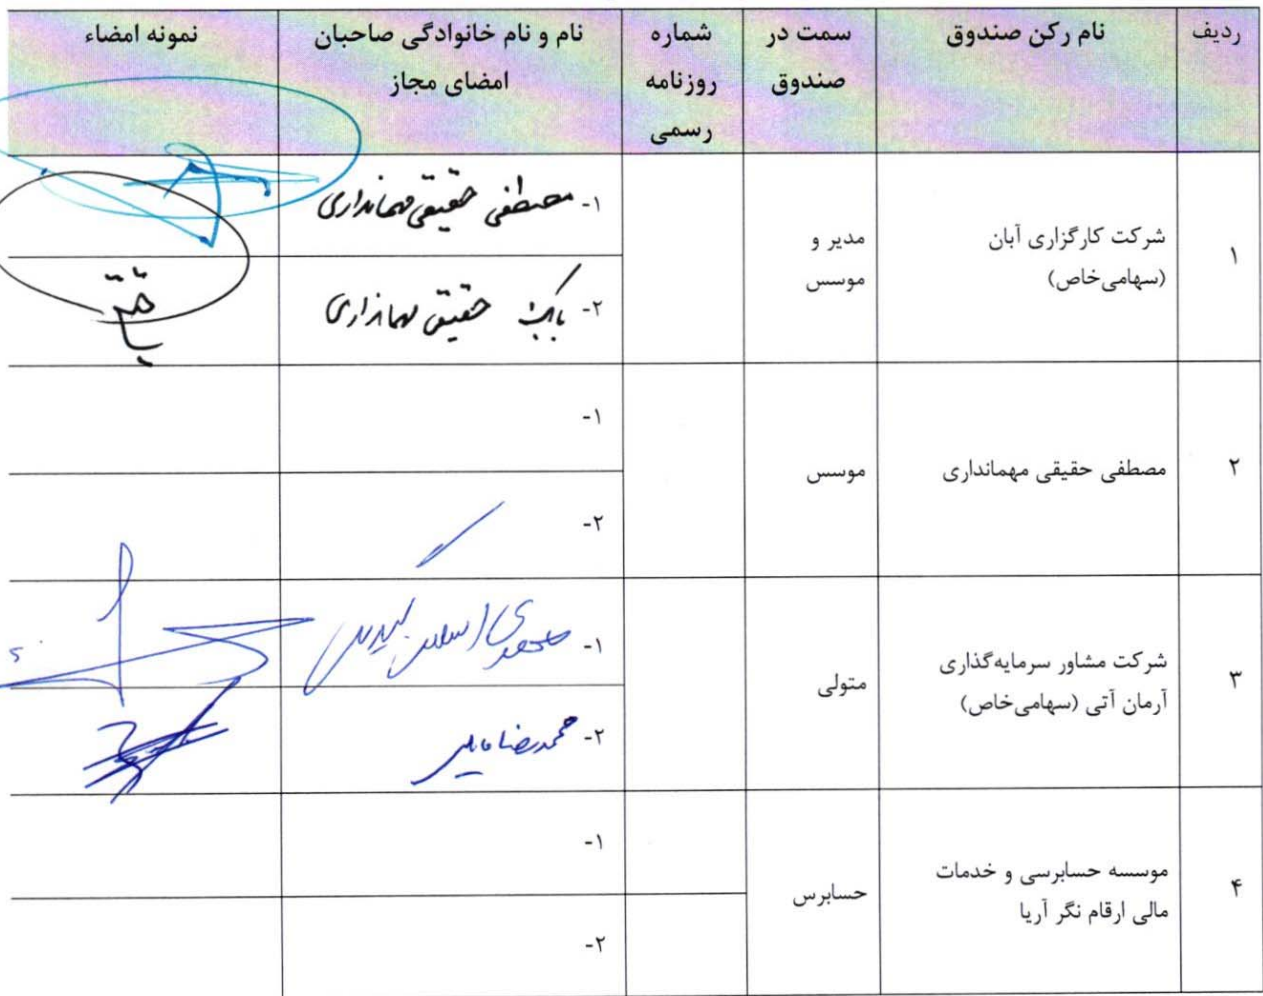 ردیف
نام رکن صندوق
سمت در
صندوق
شماره
روزنامه
رسمی
نام و نام خانوادگی صاحبان
امضای مجاز
نمونه امضاء
۱
شرکت کارگزاری آبان
(سهامی‌خاص)
مدیر و
موسس
۱- مصطفی حقیقی مهمانداری
۲- بابک حقیقی مهمانداری
۲
مصطفی حقیقی مهمانداری
موسس
۱-
۲-
۳
شرکت مشاور سرمایه‌گذاری
آرمان آتی (سهامی‌خاص)
متولی
۱-
۲- محمدرضا
۴
موسسه حسابرسی و خدمات
مالی ارقام نگر آریا
حسابرس
۱-
۲-